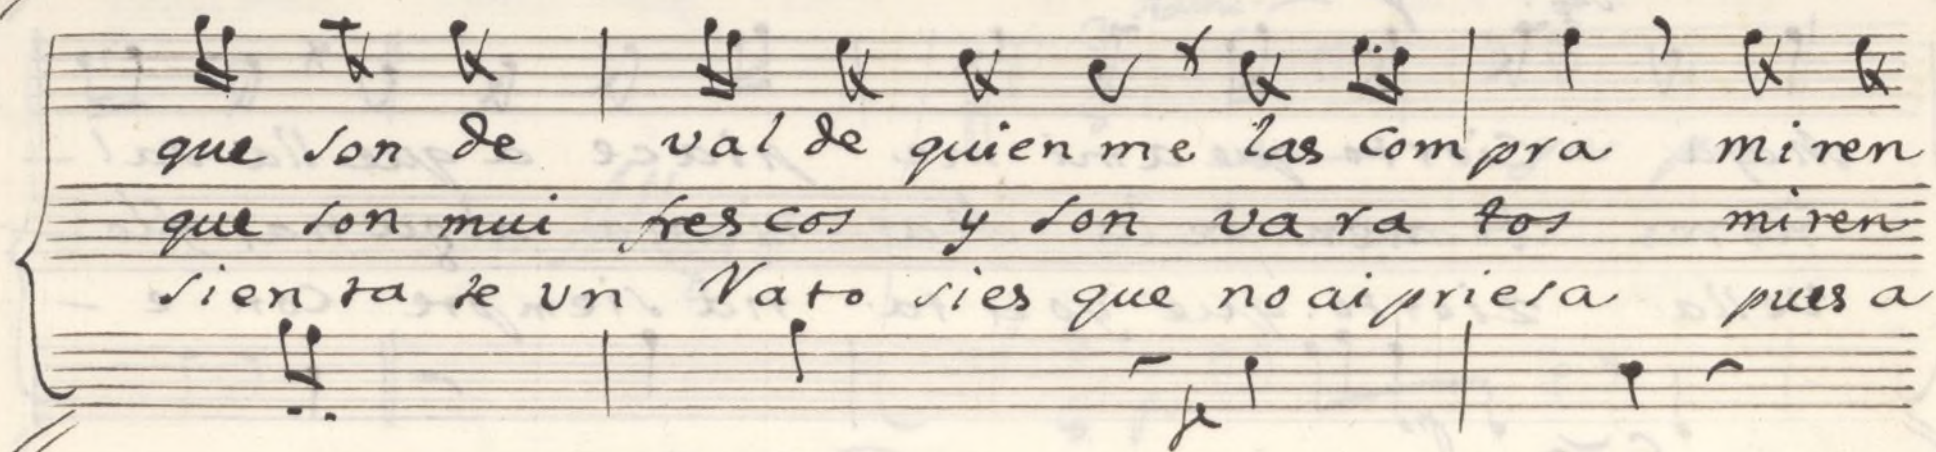 que son de val de quien me las compra miren
que son mui frescos y son varatos miren
sientate un Rato sies que no ai priesa pues a